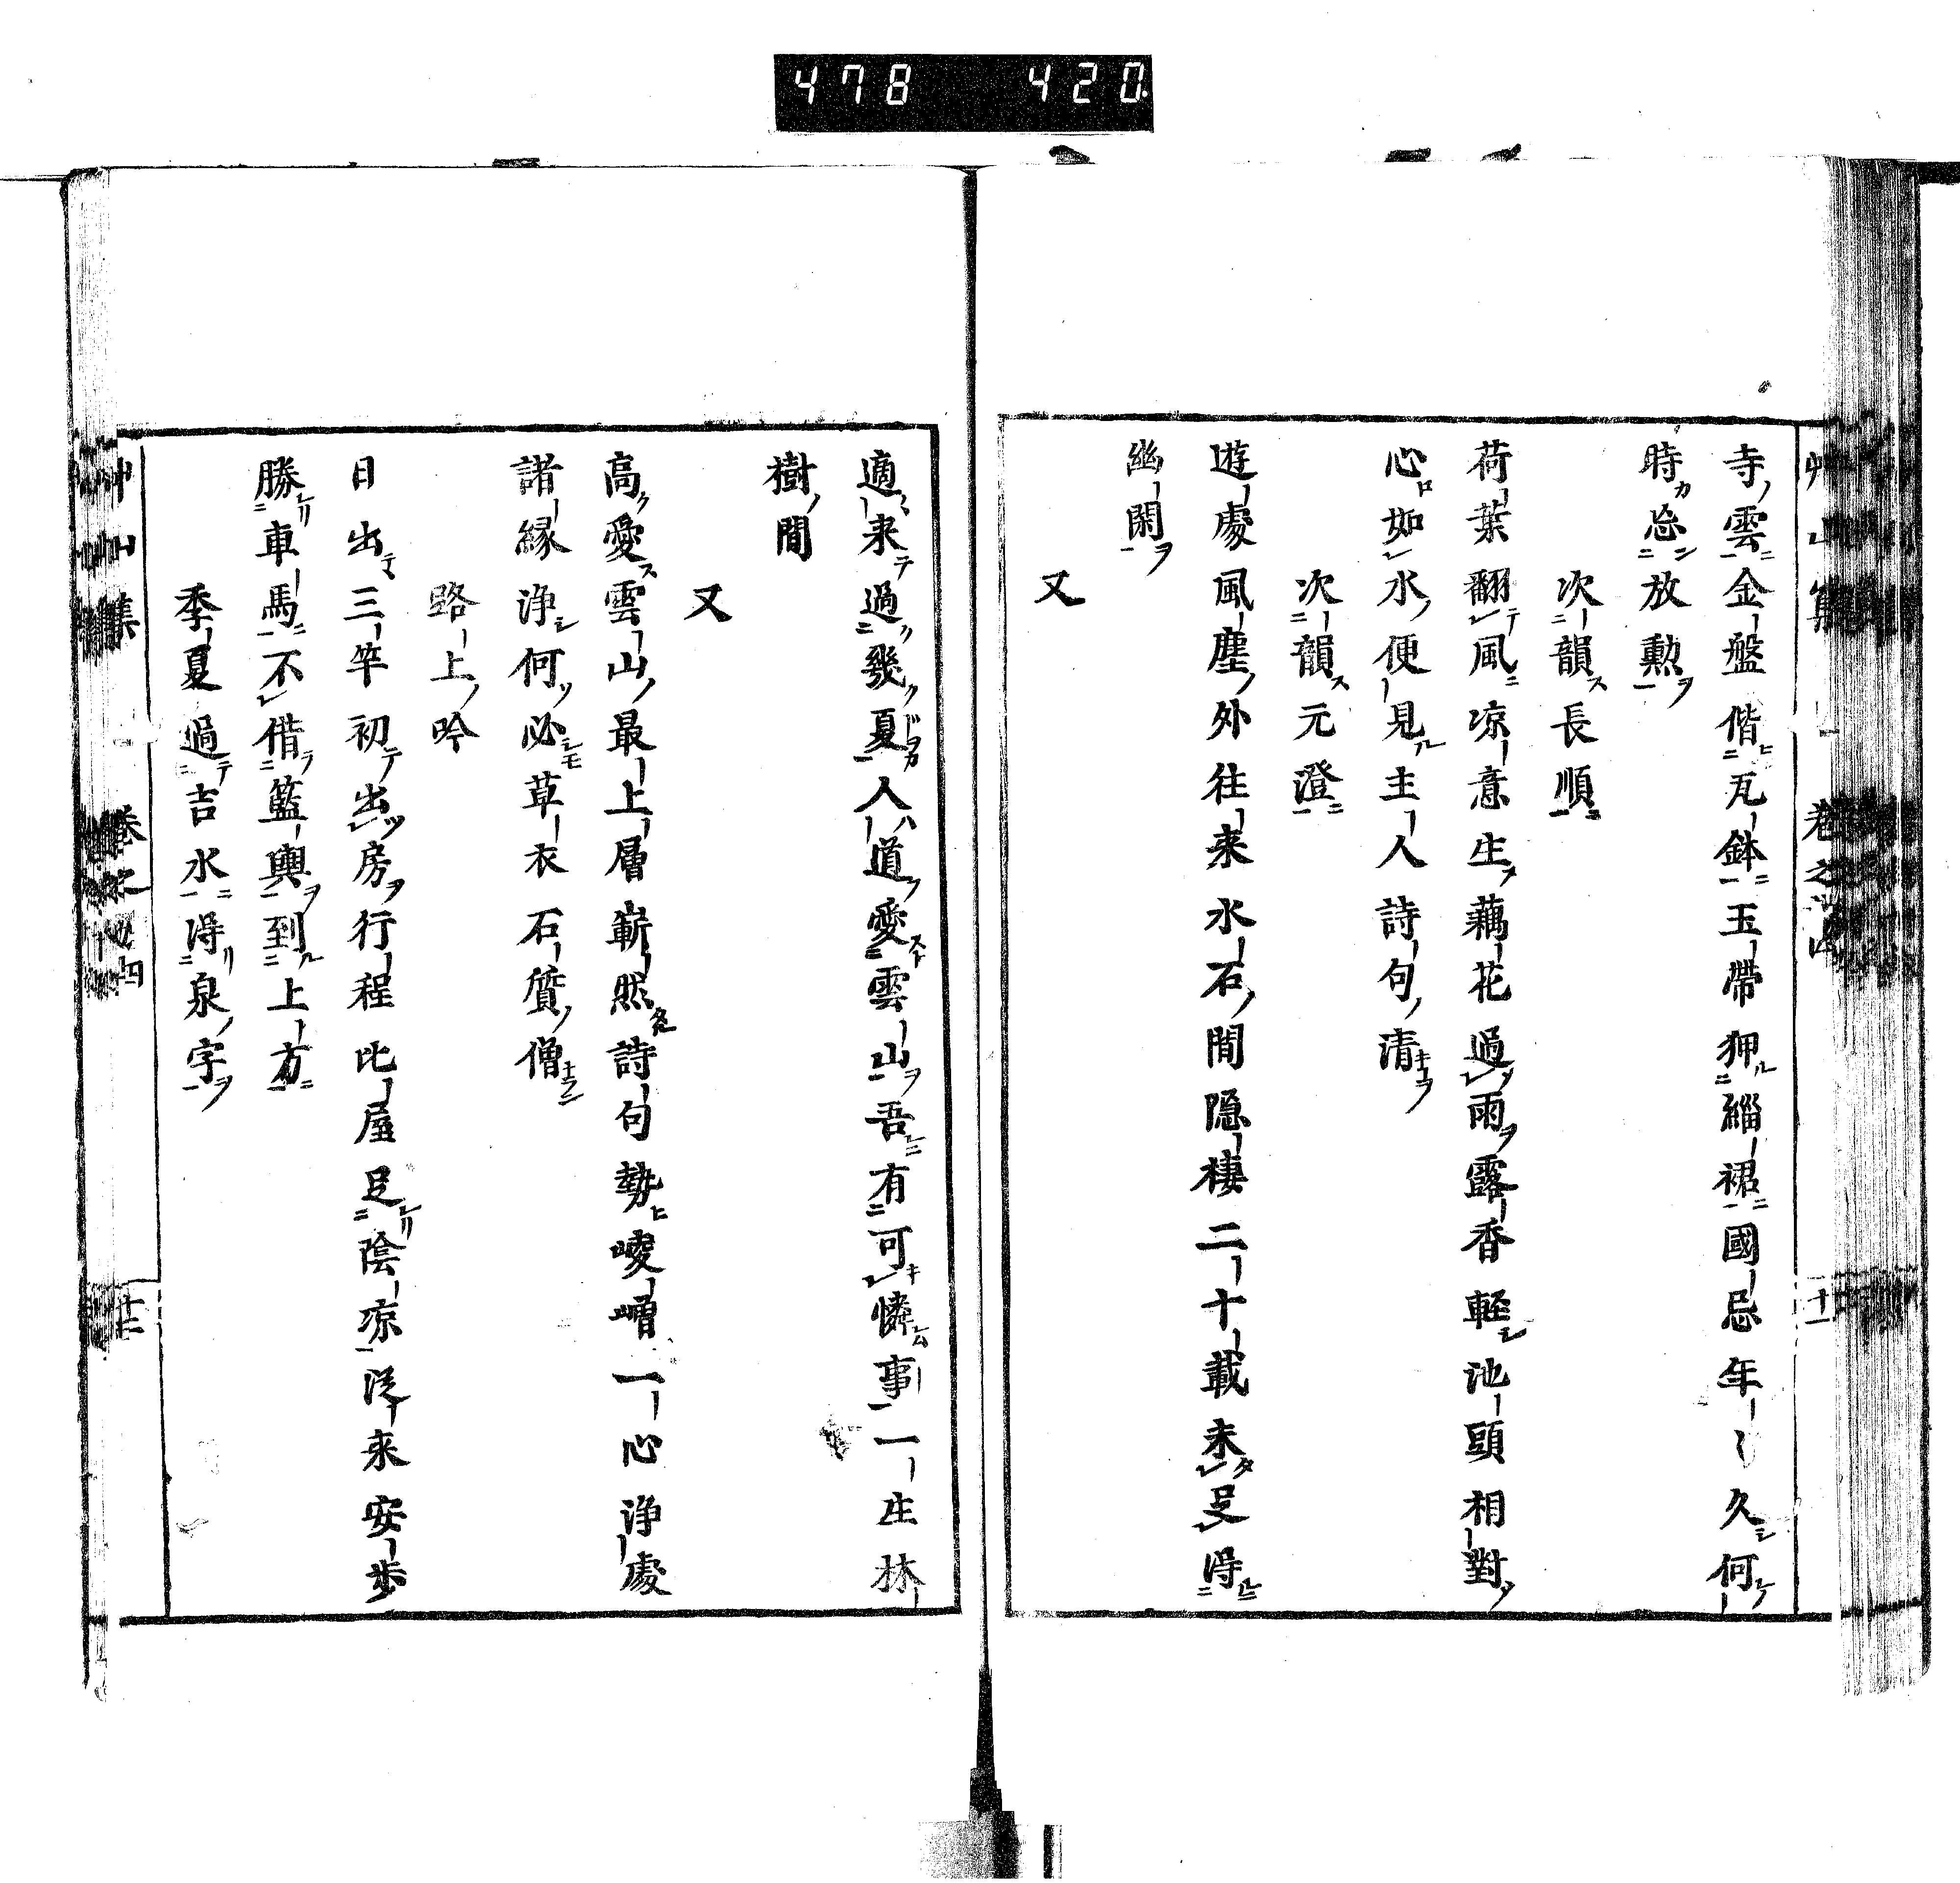 478 420
寺雲金盤偕瓦鉢玉帶狎緇裙國忌年〻久何
時忘放勲
次韻長順
荷葉翻風凉意生藕花過雨露香輕池頭相對
心如水便見主人詩句清
次韻元澄
遊處風塵外往来水石間隠棲二十載未足得
幽閑
又
適来過幾夏人道愛雲山吾有可憐事一生林
樹間
又
高愛雲山最上層嶄然詩句勢崚嶒一心浄處
諸縁浄何必草衣石質僧
路上吟
日出三竿初出房行程比屋足陰凉従来安歩
勝車馬不借籃輿到上方
季夏過吉水得泉字
艸山集 卷之 四 十二